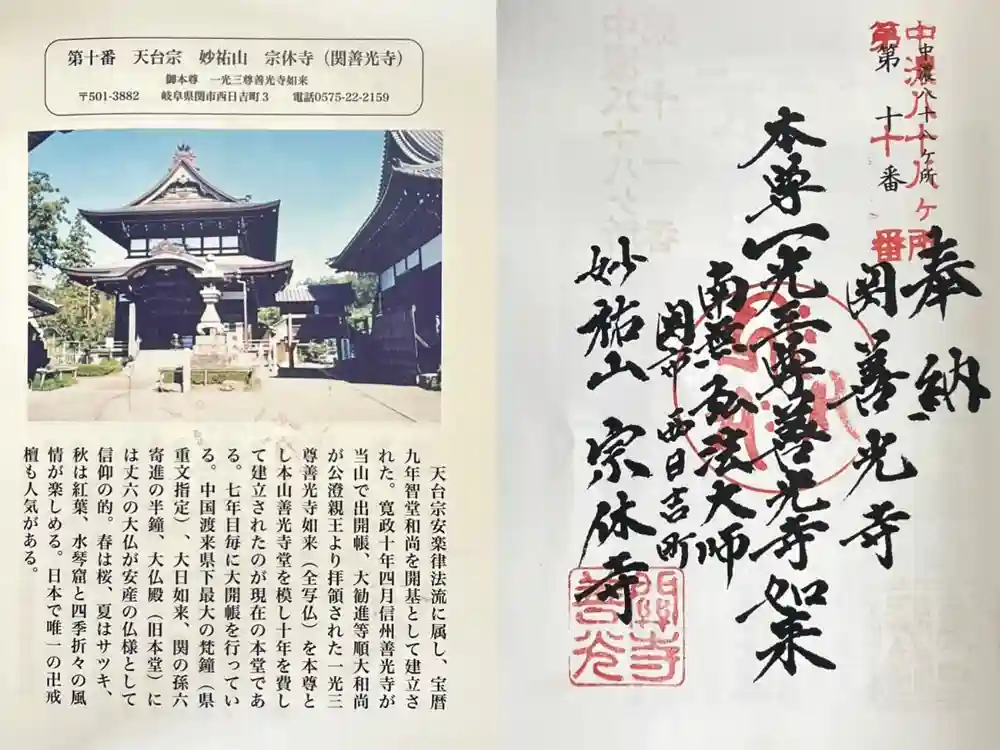 第十番　天台宗　妙祐山　宗休寺（関善光寺）
御本尊　一光三尊善光寺如来
〒501-3882　岐阜県関市西日吉町3　電話0575-22-2159
天台宗安楽律法流に属し、宝暦
九年智堂和尚を開基として建立さ
れた。寛政十年四月信州善光寺が
当山で出開帳、大勧進等順大和尚
が公澄親王より拝領された一光三
尊善光寺如来（全写仏）を本尊と
し本山善光寺堂を模し十年を費し
て建立されたのが現在の本堂であ
る。七年目毎に大開帳を行ってい
る。中国渡来県下最大の梵鐘（県
重文指定）、大日如来、関の孫六
寄進の半鐘、大仏殿（旧本堂）に
は丈六の大仏が安産の仏様として
信仰の的。春は桜、夏はサツキ、
秋は紅葉、水琴窟と四季折々の風
情が楽しめる。日本で唯一の卍戒
壇も人気がある。
中濃八十八ヶ所
第十番
中濃八十八ヶ所
第十番
奉納
関善光寺
本尊一光三尊善光寺如来
南無弘法大師
関市西日吉町
妙祐山宗休寺
關寺
善光